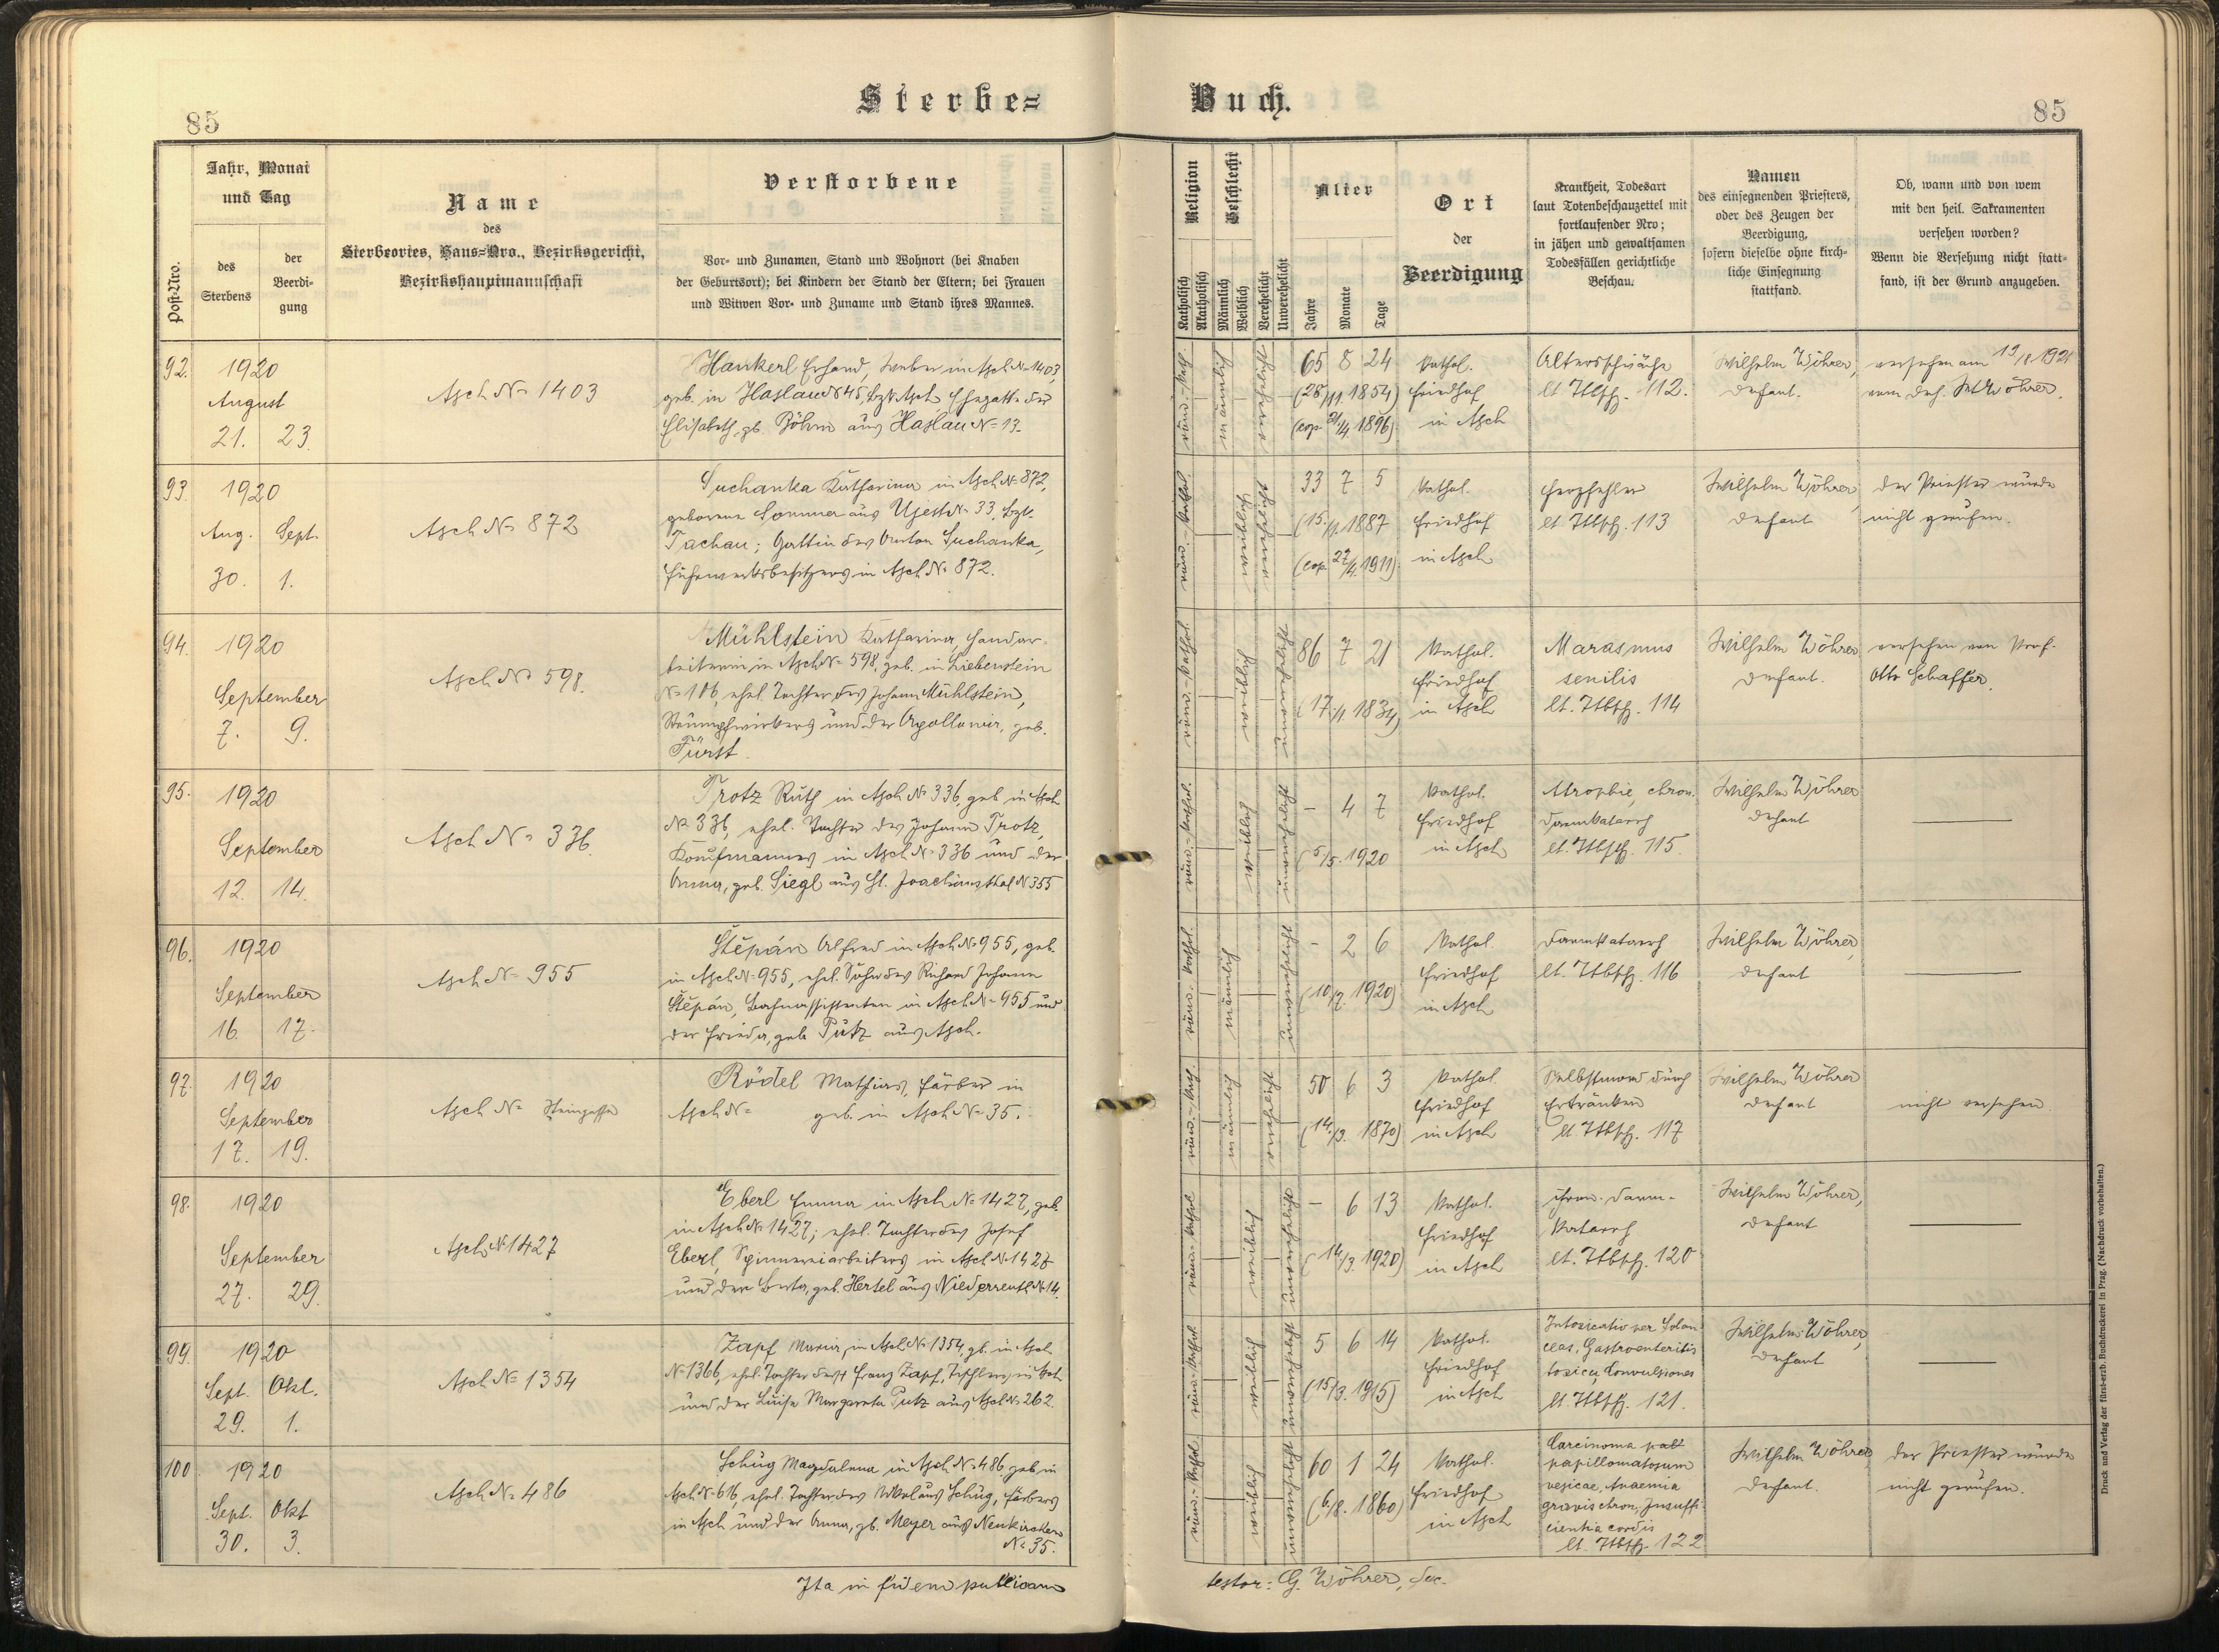 Sterbe=
Buch.
85
85
Post-Nro.
Jahr, Monat
und Tag
des
Sterbens
der
Beerdi-
gung
Name
des
Sterbeortes, Haus=Nro., Bezirksgericht,
Bezirkshauptmannschaft
Verstorbene
Vor- und Zunamen, Stand und Wohnort (bei Knaben
der Geburtsort); bei Kindern der Stand der Eltern; bei Frauen
und Witwen Vor- und Zuname und Stand ihres Mannes.
Religion
Katholisch
Akatholisch
Geschlecht
Männlich
Weiblich
Verehelicht
Unverehelicht
Alter
Jahre
Monate
Tage
Ort
der
Beerdigung
Krankheit, Todesart
laut Totenbeschauzettel mit
fortlaufender Nro;
in jähen und gewaltsamen
Todesfällen gerichtliche
Beschau.
Namen
des einsegnenden Priesters,
oder des Zeugen der
Beerdigung,
sofern dieselbe ohne kirch-
liche Einsegnung
stattfand.
Ob, wann und von wem
mit den heil. Sakramenten
versehen worden?
Wenn die Versehung nicht statt=
fand, ist der Grund anzugeben.
92.
1920
August
21. 23.
Asch No 1403
Hankerl Erhard, Weber in Asch No 1403,
geb. in Haslau No 45, Bzk. Asch Ehegatte der
Elisabeth, gb. Böhm aus Haslau No 13.
röm.-kath.
männlich
verehelicht
65 8 24
(28/11. 1854)
(cop. 21/4. 1896)
kathol.
Friedhof
in Asch
Altersschwäche
lt. Ttbsch. 112.
Wilhelm Wöhrer,
Defizient.
versehen am 19/8 1921
vom Def. W. Wöhrer.
93.
1920
Aug. Sept.
30. 1.
Asch No 872
Suchanka Katharina in Asch No 872,
geborene Sommer aus Ujest No 33, Bzk.
Tachau; Gattin des Anton Suchanka,
Fuhrwerksbesitzers in Asch No 872.
röm.-kathol.
weiblich
verehelicht
33 7 5
(15./1. 1887
(cop. 27/4. 1911)
kathol.
Friedhof
in Asch
Herzfehler
lt. Ttbsch. 113
Wilhelm Wöhrer,
Defizient
der Priester wurde
nicht gerufen.
94.
1920
September
7. 9.
Asch No 598.
Mühlstein Katharina, Handar-
beiterin in Asch No 598, geb. in Liebenstein
No 106, ehel. Tochter des Johann Mühlstein,
Strumpfwirkers und der Apollonia, geb.
Fürst.
röm.-kathol.
weiblich
unverehelicht
86 7 21
(17./1. 1834)
kathol.
Friedhof
in Asch
Marasmus
senilis
lt. Ttbsch. 114
Wilhelm Wöhrer
Defizient.
versehen von Prof.
Otto Schaffer.
95.
1920
September
12. 14.
Asch No 336.
Trotz Ruth in Asch No 336, geb. in Asch
No 336, ehel. Tochter des Johann Trotz,
Kaufmannes in Asch No 336 und der
Anna, geb. Siegl aus St. Joachimsthal No 355
röm.-kathol.
weiblich
unverehelicht
– 4 7
(5/5. 1920
kathol.
Friedhof
in Asch
Atrophie, chron.
Darmkatarrh
lt. Ttbsch. 115.
Wilhelm Wöhrer
Defizient
96.
1920
September
16. 17.
Asch No 955
Štěpán Alfred in Asch No 955, geb.
in Asch No 955, ehel. Sohn des Richard Johann
Štěpán, Bahnassistenten in Asch No 955 und
der Frieda, geb. Putz aus Asch.
röm.-kathol.
männlich
unverehelicht
– 2 6
(10/7. 1920)
kathol.
Friedhof
in Asch
Darmkatarrh
lt. Ttbsch. 116
Wilhelm Wöhrer,
Defizient
97.
1920
September
17. 19.
Asch No Steingasse
Rödel Mathias, Färber in
Asch No geb. in Asch No 35.
röm.-kath.
männlich
verehelicht
50 6 3
(14./3. 1870)
kathol.
Friedhof
in Asch
Selbstmord durch
Ertränken
lt. Ttbsch. 117
Wilhelm Wöhrer
Defizient
nicht versehen
98.
1920
September
27. 29.
Asch No 1427
Eberl Emma in Asch No 1427, geb.
in Asch No 1427; ehel. Tochter des Josef
Eberl, Spinnereiarbeiters in Asch No 1427
und der Berta, geb. Hertel aus Niederreuth No 14.
röm.-kathol
weiblich
unverehelicht
– 6 13
(14/3. 1920)
kathol.
Friedhof
in Asch
chron. Darm-
katarrh
lt. Ttbsch. 120
Wilhelm Wöhrer,
Defizient
99.
1920
Sept. Okt.
29. 1.
Asch No 1354
Zapf Maria, in Asch No 1354, gb. in Asch
No 1366, ehel. Tochter des + Franz Zapf, Tischlers in Asch
und der Luise Margareta Putz aus Asch No 262.
röm.-kathol.
weiblich
unverehelicht
5 6 14
(15/3. 1915)
kathol.
Friedhof
in Asch
Intoxicatio per Solan
ceas, Gastroenteritis
toxica, Convulsiones
lt. Ttbsch. 121.
Wilhelm Wöhrer,
Defizient
100
1920
Sept. Okt
30. 3.
Asch No 486
Schug Magdalena in Asch No 486 geb. in
Asch No 616, ehel. Tochter des Nikolaus Schug, Färbers
in Asch und der Anna, gb. Meyer aus Neukirchen
No 35.
röm.-kathol.
weiblich
unverehelicht
60 1 24
(6/8. 1860)
kathol.
Friedhof
in Asch
Carcinoma
papillomatosum
vesicae, Anaemia
gravis chron, Insuffi-
cientia cordis
lt. Ttbsch. 122
Wilhelm Wöhrer,
Defizient.
der Priester wurde
nicht gerufen.
Ita in fidem publicam
testor: G. Wöhrer,
Druck und Verlag der fürst-erzb. Buchdruckerei in Prag. (Nachdruck vorbehalten.)